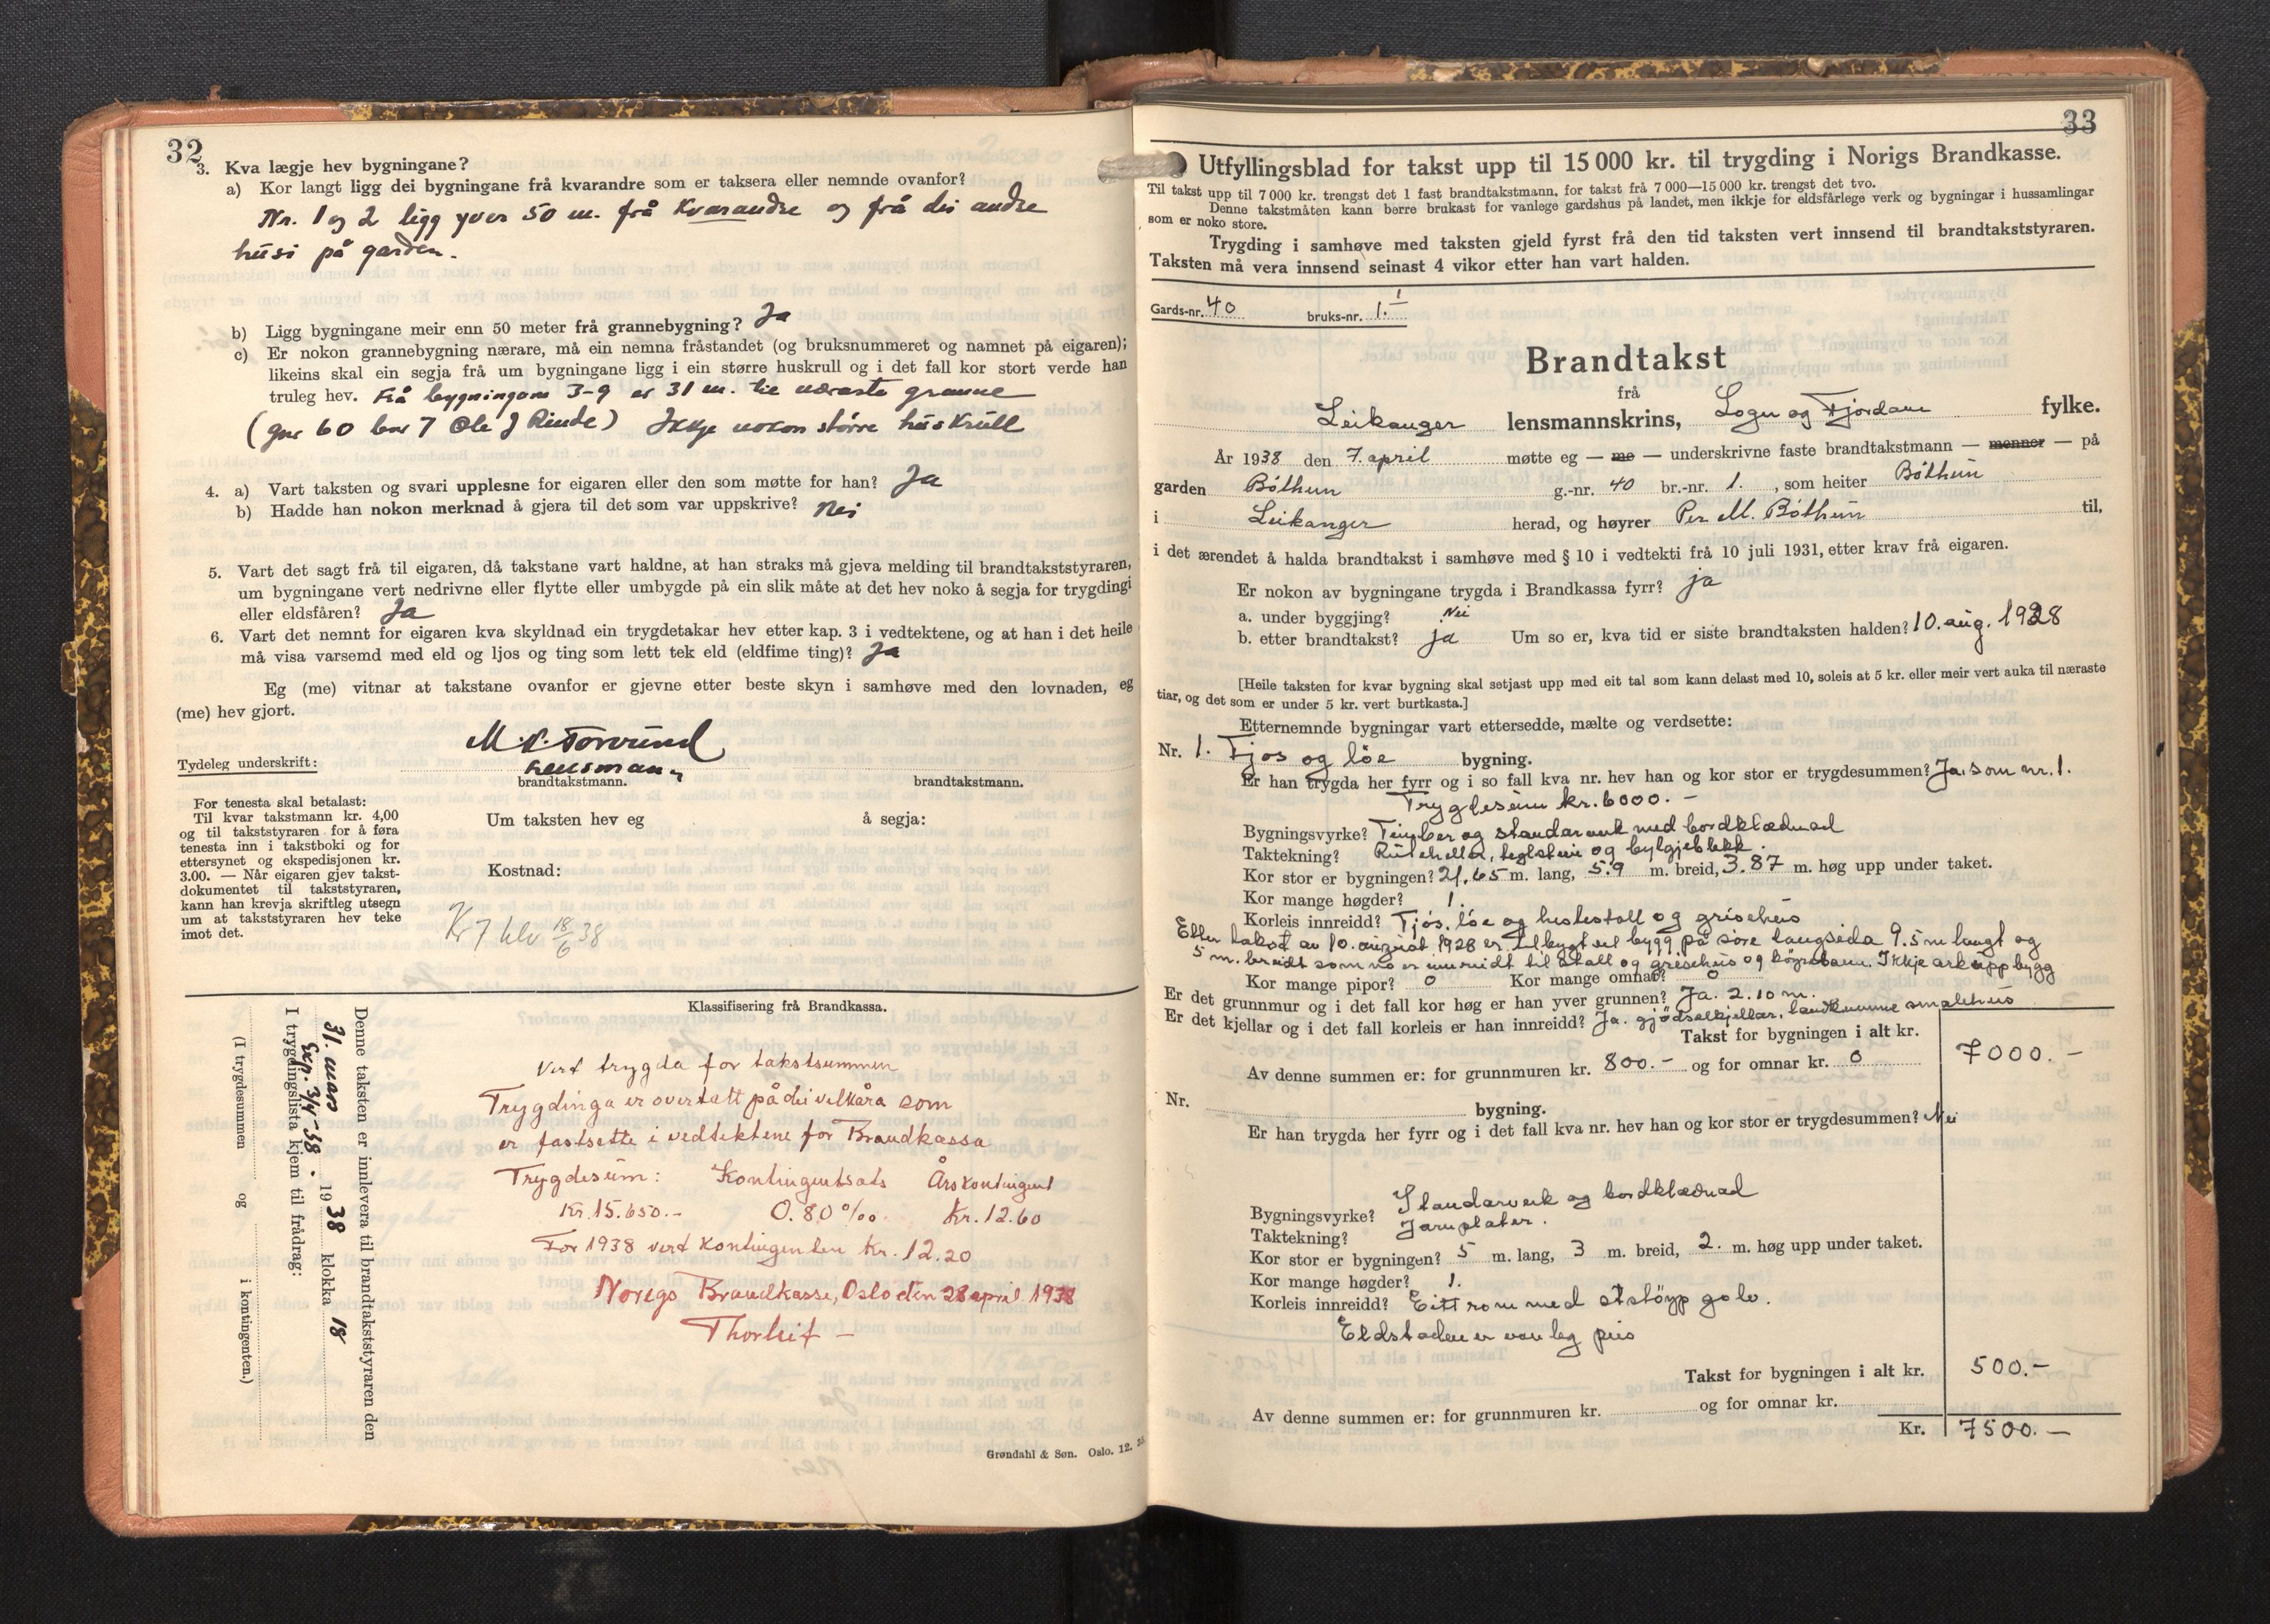 32
3. Kva lægje hev bygningane?
a) Kor langt ligg dei bygningane frå kvarandre som er taksera eller nemnde ovanfor?
Nr. 1 og 2 ligg yver 50 m. frå kvarandre og frå dei andre
husi på garden.
b) Ligg bygningane meir enn 50 meter frå grannebygning? Ja
c) Er nokon grannebygning nærare, må ein nemna fråstandet (og bruksnummeret og namnet på eigaren);
likeins skal ein segja frå um bygningane ligg i ein større huskrull og i det fall kor stort verde han
truleg hev. Frå bygningane 3-9 er 31 m. til næraste granne
(gnr 60 bnr 7 Ole J Rinde) Ikkje nokon större huskrull
4. a) Vart taksten og svari upplesne for eigaren eller den som møtte for han? Ja
b) Hadde han nokon merknad å gjera til det som var uppskrive? Nei
5. Vart det sagt frå til eigaren, då takstane vart haldne, at han straks må gjeva melding til brandtakststyraren,
um bygningane vert nedrivne eller flytte eller umbygde på ein slik måte at det hev noko å segja for trygdingi
eller eldsfåren? Ja
6. Vart det nemnt for eigaren kva skyldnad ein trygdetakar hev etter kap. 3 i vedtektene, og at han i det heile
må visa varsemd med eld og ljos og ting som lett tek eld (eldfime ting)? Ja
Eg (me) vitnar at takstane ovanfor er gjevne etter beste skyn i samhøve med den lovnaden, eg
(me) hev gjort.
Tydeleg underskrift:
lensmann
brandtakstmann. brandtakstmann.
For tenesta skal betalast:
Til kvar takstmann kr. 4,00
og til takststyraren for å føra
tenesta inn i takstboki og for
ettersynet og ekspedisjonen kr.
3.00. — Når eigaren gjev takst-
dokumentet til takststyraren,
kann han krevja skriftleg utsegn
um at takststyraren hev teke
imot det.
Um taksten hev eg å segja:
Kostnad:
Kr 7 18/6 38
Klassifisering frå Brandkassa.
Vert trygda for takstsummen
Trygdinga er overtatt på dei vilkåra som
er fastsette i vedtektene for Brandkassa
Trygdesum: Kontingentsats Årskontingent
Kr. 15.650.- 0.80 ‰ Kr. 12.60
For 1938 vert kontingenten kr. 12.20
Noregs Brandkasse, Oslo den 28 april 1938
Thorleif
Denne taksten er innlevera til brandtakststyraren den
31. mars 1938 klokka 18
Exp. 3/4-38.
I trygdingslista kjem til frådrag:
(I trygdesummen og i kontingenten.)
Grøndahl & Søn. Oslo. 12.
33
Utfyllingsblad for takst upp til 15 000 kr. til trygding i Norigs Brandkasse.
Til takst upp til 7 000 kr. trengst det 1 fast brandtakstmann, for takst frå 7 000—15 000 kr. trengst det tvo.
Denne takstmåten kann berre brukast for vanlege gardshus på landet, men ikkje for eldsfårlege verk og bygningar i hussamlingar
som er noko store.
Trygding i samhøve med taksten gjeld fyrst frå den tid taksten vert innsend til brandtakststyraren.
Taksten må vera innsend seinast 4 vikor etter han vart halden.
Gards-nr. 40 bruks-nr. 1.
Brandtakst
frå
Leikanger lensmannskrins, Sogn og Fjordane fylke.
År 1938 den 7. april møtte eg — me — underskrivne faste brandtakstmann — menner — på
garden Böthun g.-nr. 40 br.-nr. 1. , som heiter Böthun
i Leikanger herad, og høyrer Per M. Böthun til,
i det ærendet å halda brandtakst i samhøve med § 10 i vedtekti frå 10 juli 1931, etter krav frå eigaren.
Er nokon av bygningane trygda i Brandkassa fyrr? ja
a. under byggjing? Nei
b. etter brandtakst? ja Um so er, kva tid er siste brandtaksten halden? 10. aug. 1928
[Heile taksten for kvar bygning skal setjast upp med eit tal som kann delast med 10, soleis at 5 kr. eller meir vert auka til næraste
tiar, og det som er under 5 kr. vert burtkasta.]
Etternemnde bygningar vart ettersedde, mælte og verdsette:
Nr. 1. Fjos og löe bygning.
Er han trygda her fyrr og i so fall kva nr. hev han og kor stor er trygdesummen? Ja. som nr. 1.
Trygdesum kr. 6000.-
Bygningsvyrke? Timber og standarverk med bordklædnad
Taktekning? Rutehellor, teglstein og bylgjeblekk.
Kor stor er bygningen? 21.65 m. lang, 5.9 m. breid, 3.87 m. høg upp under taket.
Kor mange høgder? 1.
Korleis innreidd? Fjös, löe og hestestall og grisehus
Etter takst av 10. august 1928 er tilbygt eit bygg på söre langsida 9.5 m langt og
5 m. breidt som no er innreidt til stall og grisehus og köyrebane. Ikkje ark uppbygg
Kor mange pipor? 0 Kor mange omnar? 0
Er det grunnmur og i det fall kor høg er han yver grunnen? Ja. 2.10 m.
Er det kjellar og i det fall korleis er han innreidd? Ja. gjödselkjellar, smalehus
Takst for bygningen i alt kr. 7000.-
Av denne summen er: for grunnmuren kr. 800.- og for omnar kr. 0
Nr. bygning.
Er han trygda her fyrr og i det fall kva nr. hev han og kor stor er trygdesummen? Nei
Bygningsvyrke? Standarverk og bordklædnad
Taktekning? Jarnplater.
Kor stor er bygningen? 5 m. lang, 3 m. breid, 2. m. høg upp under taket.
Kor mange høgder? 1.
Korleis innreidd? Eitt rom med støyp golv.
Eldstaden er vanleg peis
Takst for bygningen i alt kr. 500.-
Av denne summen er: for grunnmuren kr. og for omnar kr.
Kr. 7500.-